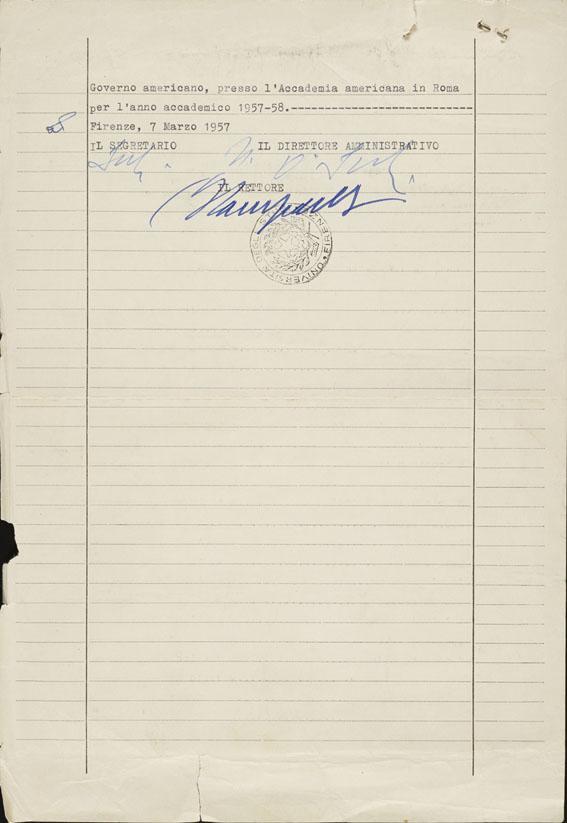 Governo americano, presso l'Accademia americana in Roma
per l'anno accademico 1957-58.---------------------------
Firenze, 7 Marzo 1957
IL SEGRETARIO IL DIRETTORE AMMINISTRATIVO
IL RETTORE
UNIVERSITÀ DEGLI FIRENZE